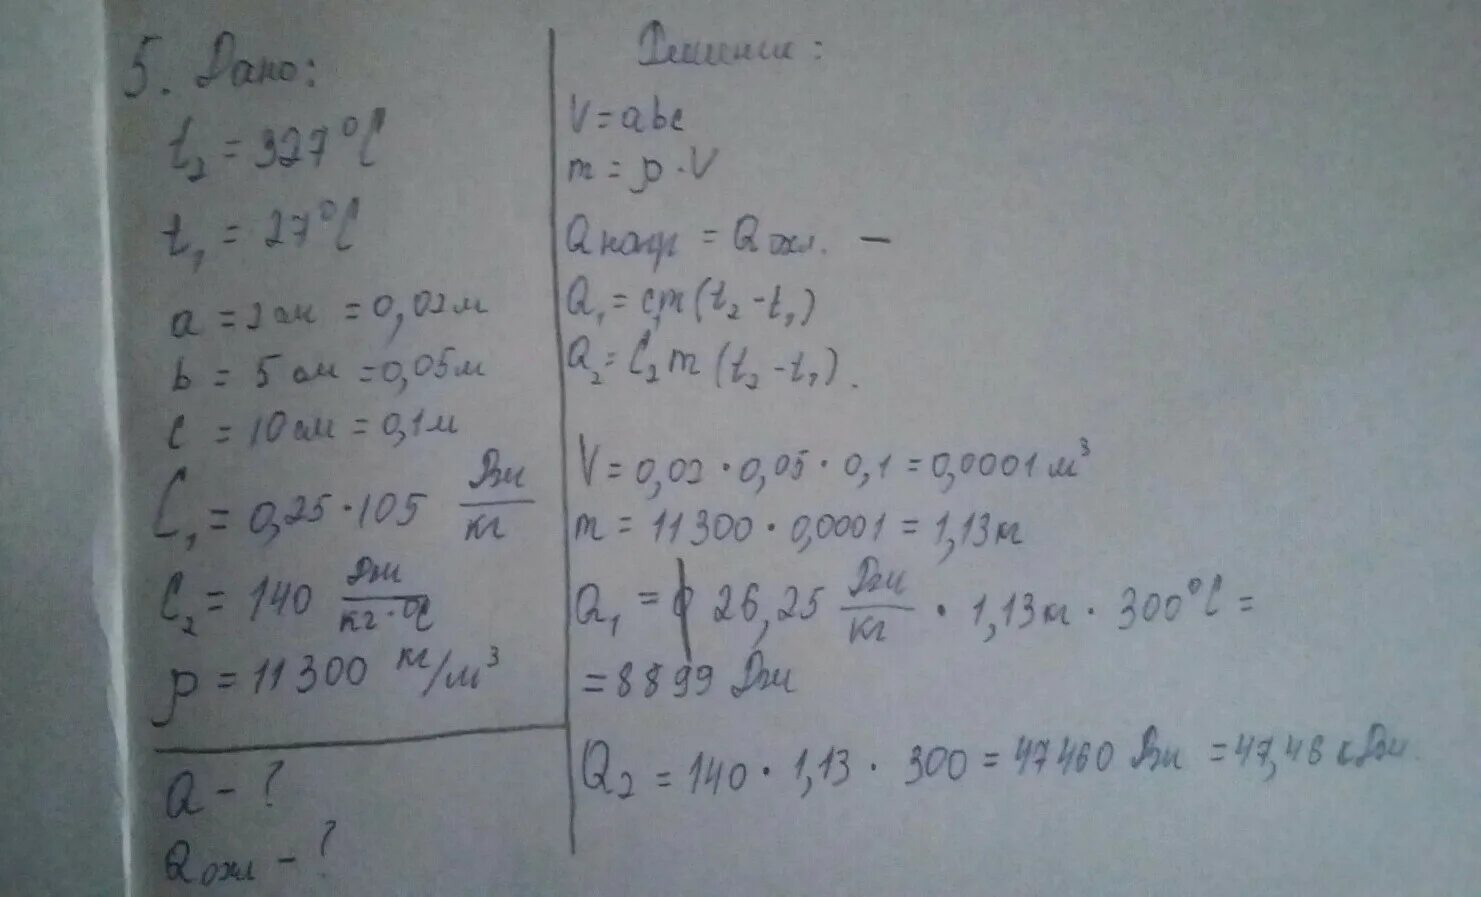 5. Дано:
t₂ = 327°C
t₁ = 27°C
a = 2 см = 0,02 м
b = 5 см = 0,05 м
c = 10 см = 0,1 м
C₁ = 0,25 · 105 Дж/кг
C₂ = 140 Дж/кг·°C
ρ = 11300 кг/м³
Q - ?
Qохл - ?
Решение:
V = abc
m = ρ · V
Qнагр = Qохл. –
Q₁ = c₁m(t₂ - t₁)
Q₂ = C₂m(t₂ - t₁).
V = 0,02 · 0,05 · 0,1 = 0,0001 м³
m = 11300 · 0,0001 = 1,13 кг
Q₁ = 26,25 Дж/кг · 1,13 кг · 300°C =
= 8899 Дж
Q₂ = 140 · 1,13 · 300 = 47460 Дж = 47,46 кДж.